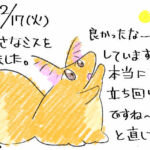 2/17(火)
さなミスを
ました。
良かったな
しています
本当に
立ち回り
ですね〜
と直し